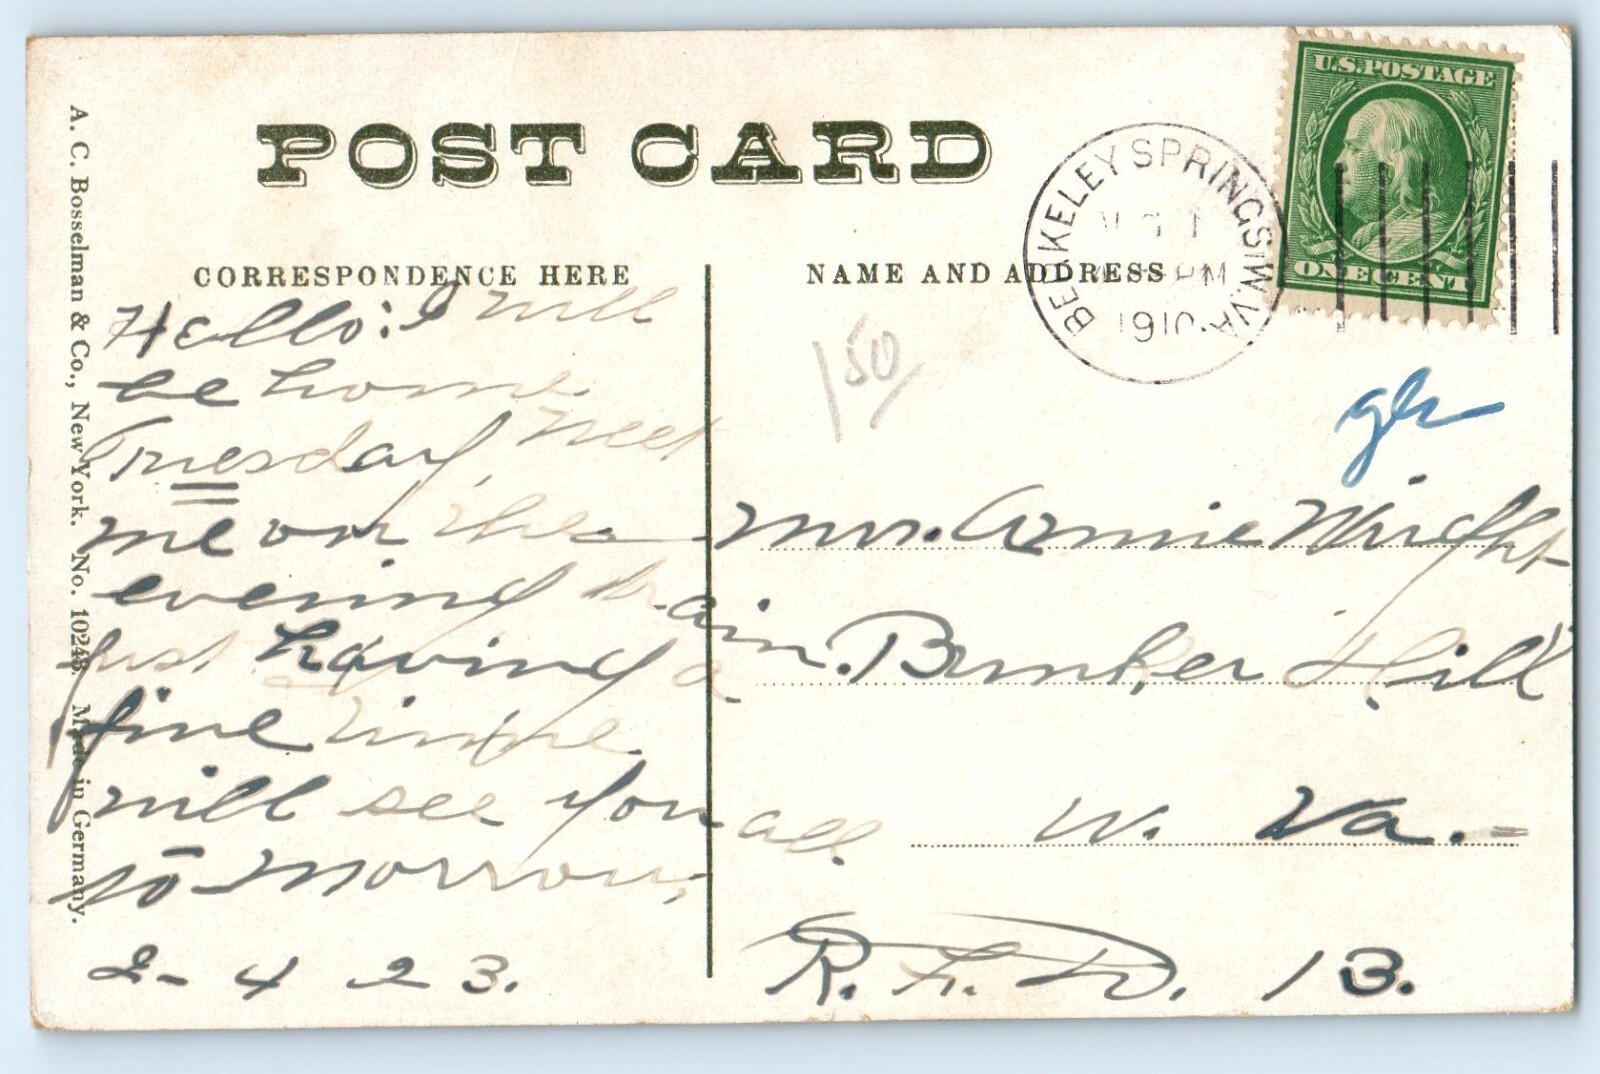 POST CARD
CORRESPONDENCE HERE
NAME AND ADDRESS
A. C. Bosselman & Co., New York. No. 10248. Made in Germany.
U.S. POSTAGE
ONE CENT
BERKELEY SPRINGS W. VA.
PM
1910
150
Hello: I will
be home
Tuesday, Meet
me on the
evening train.
Just having a
fine time
will see you all
to-morrow,
2-4 23.
Mrs. Annie Wright
Bunker Hill
W. Va.
R. F. D. 13.